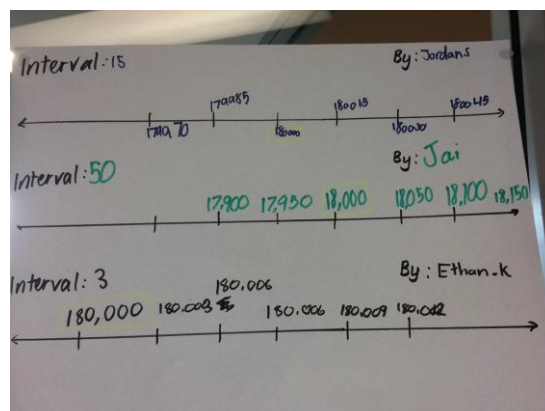 Interval: 15 By: Jordans
179985 180015 180045
179970 180000 180030
Interval: 50 By: Jai
17,900 17,950 18,000 18,050 18,100 18,150
Interval: 3 By: Ethan.K
180.006
180,000 180.003 180.006 180.009 180.012